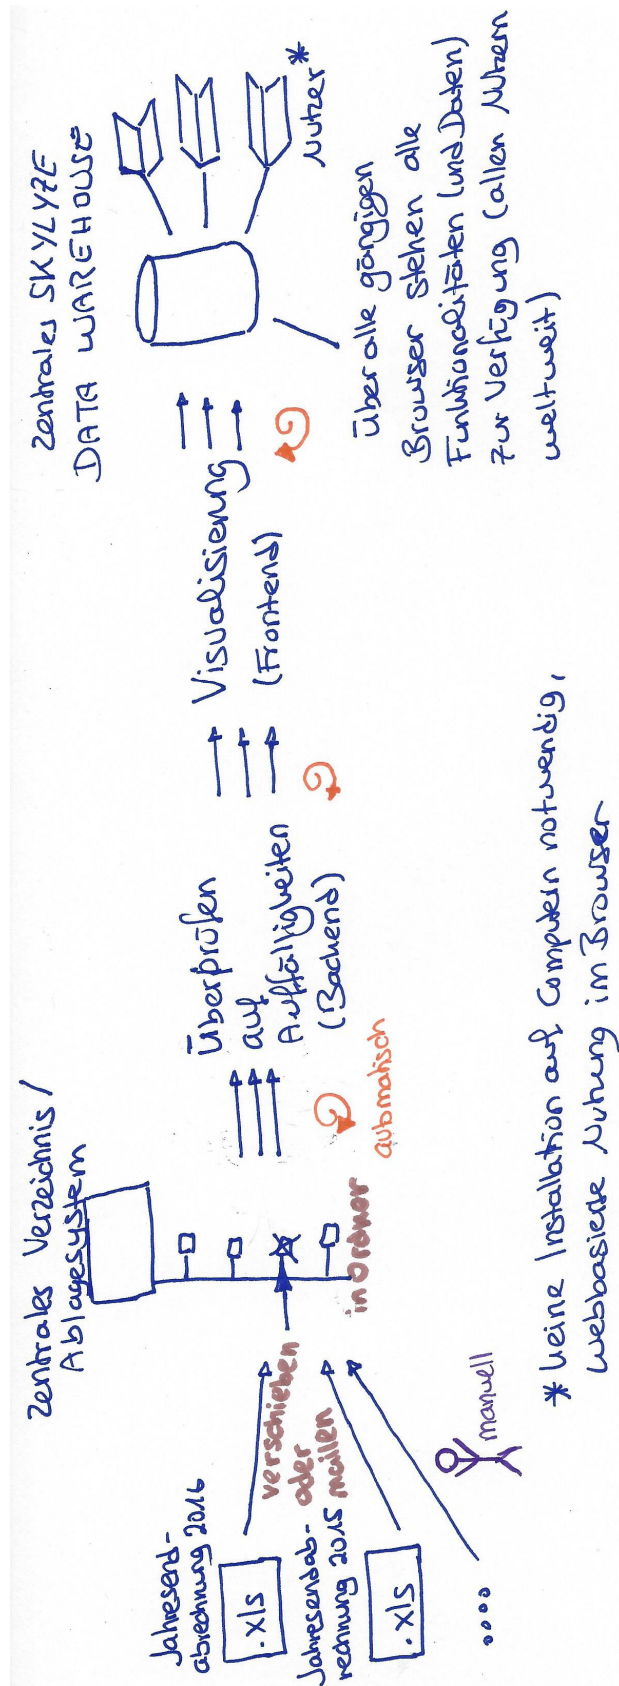 Jahresend-
abrechnung 2016
.xls
Jahresendab-
rechnung 2015
.xls
....
verschieben
oder
mailen
manuell
Zentrales Verzeichnis/
Ablagesystem
in Ordner
automatisch
Überprüfen
auf
Auffälligkeiten
(Backend)
Visualisierung
(Frontend)
Zentrales SKYLYZE
DATA WAREHOUSE
Nutzer*
Über alle gängigen
Browser stehen alle
Funktionalitäten (und Daten)
zur Verfügung (allen Nutzern
weltweit)
* keine Installation auf Computern notwendig,
webbasierte Nutzung im Browser